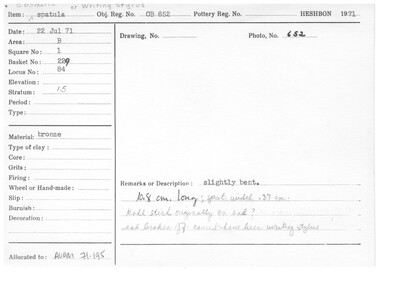 or Writing Stylus
Item: spatula Obj. Reg. No. OB 652 Pottery Reg. No. HESHBON 1971
Date: 22 Jul 71
Area: B
Square No: 1
Basket No: 229
Locus No: 84
Elevation:
Stratum: 15
Period:
Type:
Drawing, No. Photo, No. 652
Material: bronze
Type of clay:
Core:
Grits:
Firing:
Wheel or Hand-made:
Slip:
Burnish:
Decoration:
Remarks or Description: slightly bent.
cm. long; width .37 cm.
Kohl stick originally on end?
end broken off could have been writing stylus
Allocated to: AUAM 71-195